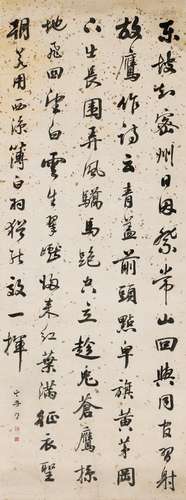 東坡知密州日因祭常山回與同官習射
放鷹作詩云青蓋前頭點皁旗黃茅岡
下出長圍弄風驕馬跑空立趁兔蒼鷹掠
地飛回望白雲生翠巘歸來紅葉滿征衣聖
朝若用西涼簿白羽猶能效一揮